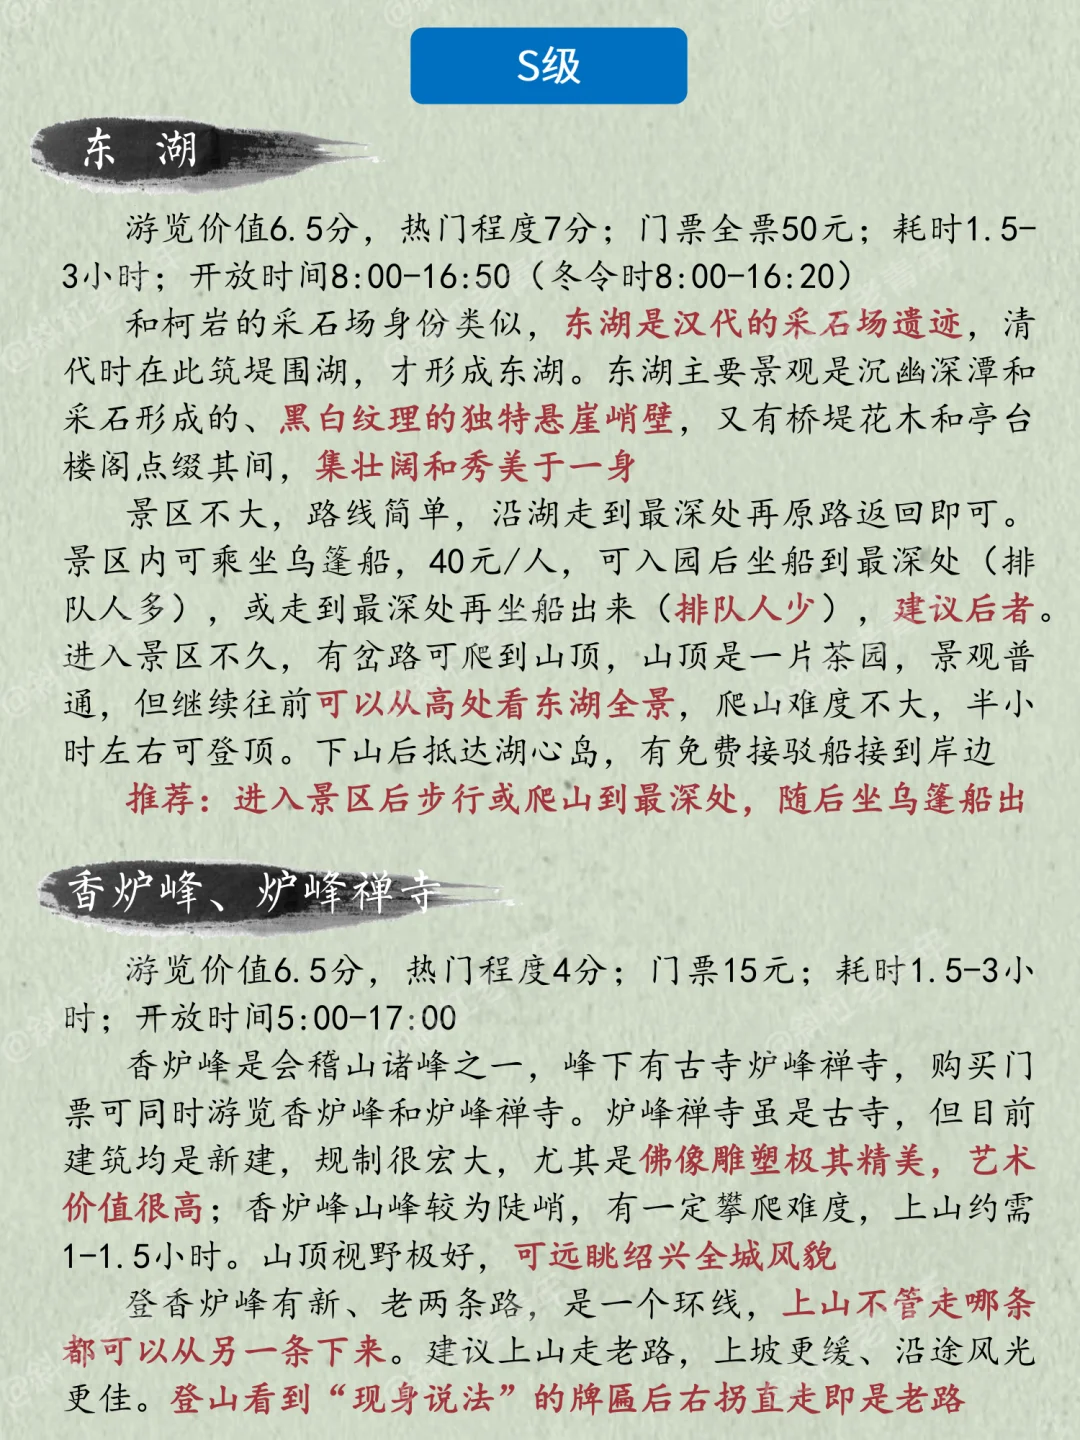 S级
东 湖
游览价值6.5分，热门程度7分；门票全票50元；耗时1.5-
3小时；开放时间8:00-16:50（冬令时8:00-16:20）
和柯岩的采石场身份类似，东湖是汉代的采石场遗迹，清
代时在此筑堤围湖，才形成东湖。东湖主要景观是沉幽深潭和
采石形成的、黑白纹理的独特悬崖峭壁，又有桥堤花木和亭台
楼阁点缀其间，集壮阔和秀美于一身
景区不大，路线简单，沿湖走到最深处再原路返回即可。
景区内可乘坐乌篷船，40元/人，可入园后坐船到最深处（排
队人多），或走到最深处再坐船出来（排队人少），建议后者。
进入景区不久，有岔路可爬到山顶，山顶是一片茶园，景观普
通，但继续往前可以从高处看东湖全景，爬山难度不大，半小
时左右可登顶。下山后抵达湖心岛，有免费接驳船接到岸边
推荐：进入景区后步行或爬山到最深处，随后坐乌篷船出
香炉峰、炉峰禅寺
游览价值6.5分，热门程度4分；门票15元；耗时1.5-3小
时；开放时间5:00-17:00
香炉峰是会稽山诸峰之一，峰下有古寺炉峰禅寺，购买门
票可同时游览香炉峰和炉峰禅寺。炉峰禅寺虽是古寺，但目前
建筑均是新建，规制很宏大，尤其是佛像雕塑极其精美，艺术
价值很高；香炉峰山峰较为陡峭，有一定攀爬难度，上山约需
1-1.5小时。山顶视野极好，可远眺绍兴全城风貌
登香炉峰有新、老两条路，是一个环线，上山不管走哪条
都可以从另一条下来。建议上山走老路，上坡更缓、沿途风光
更佳。登山看到“现身说法”的牌匾后右拐直走即是老路